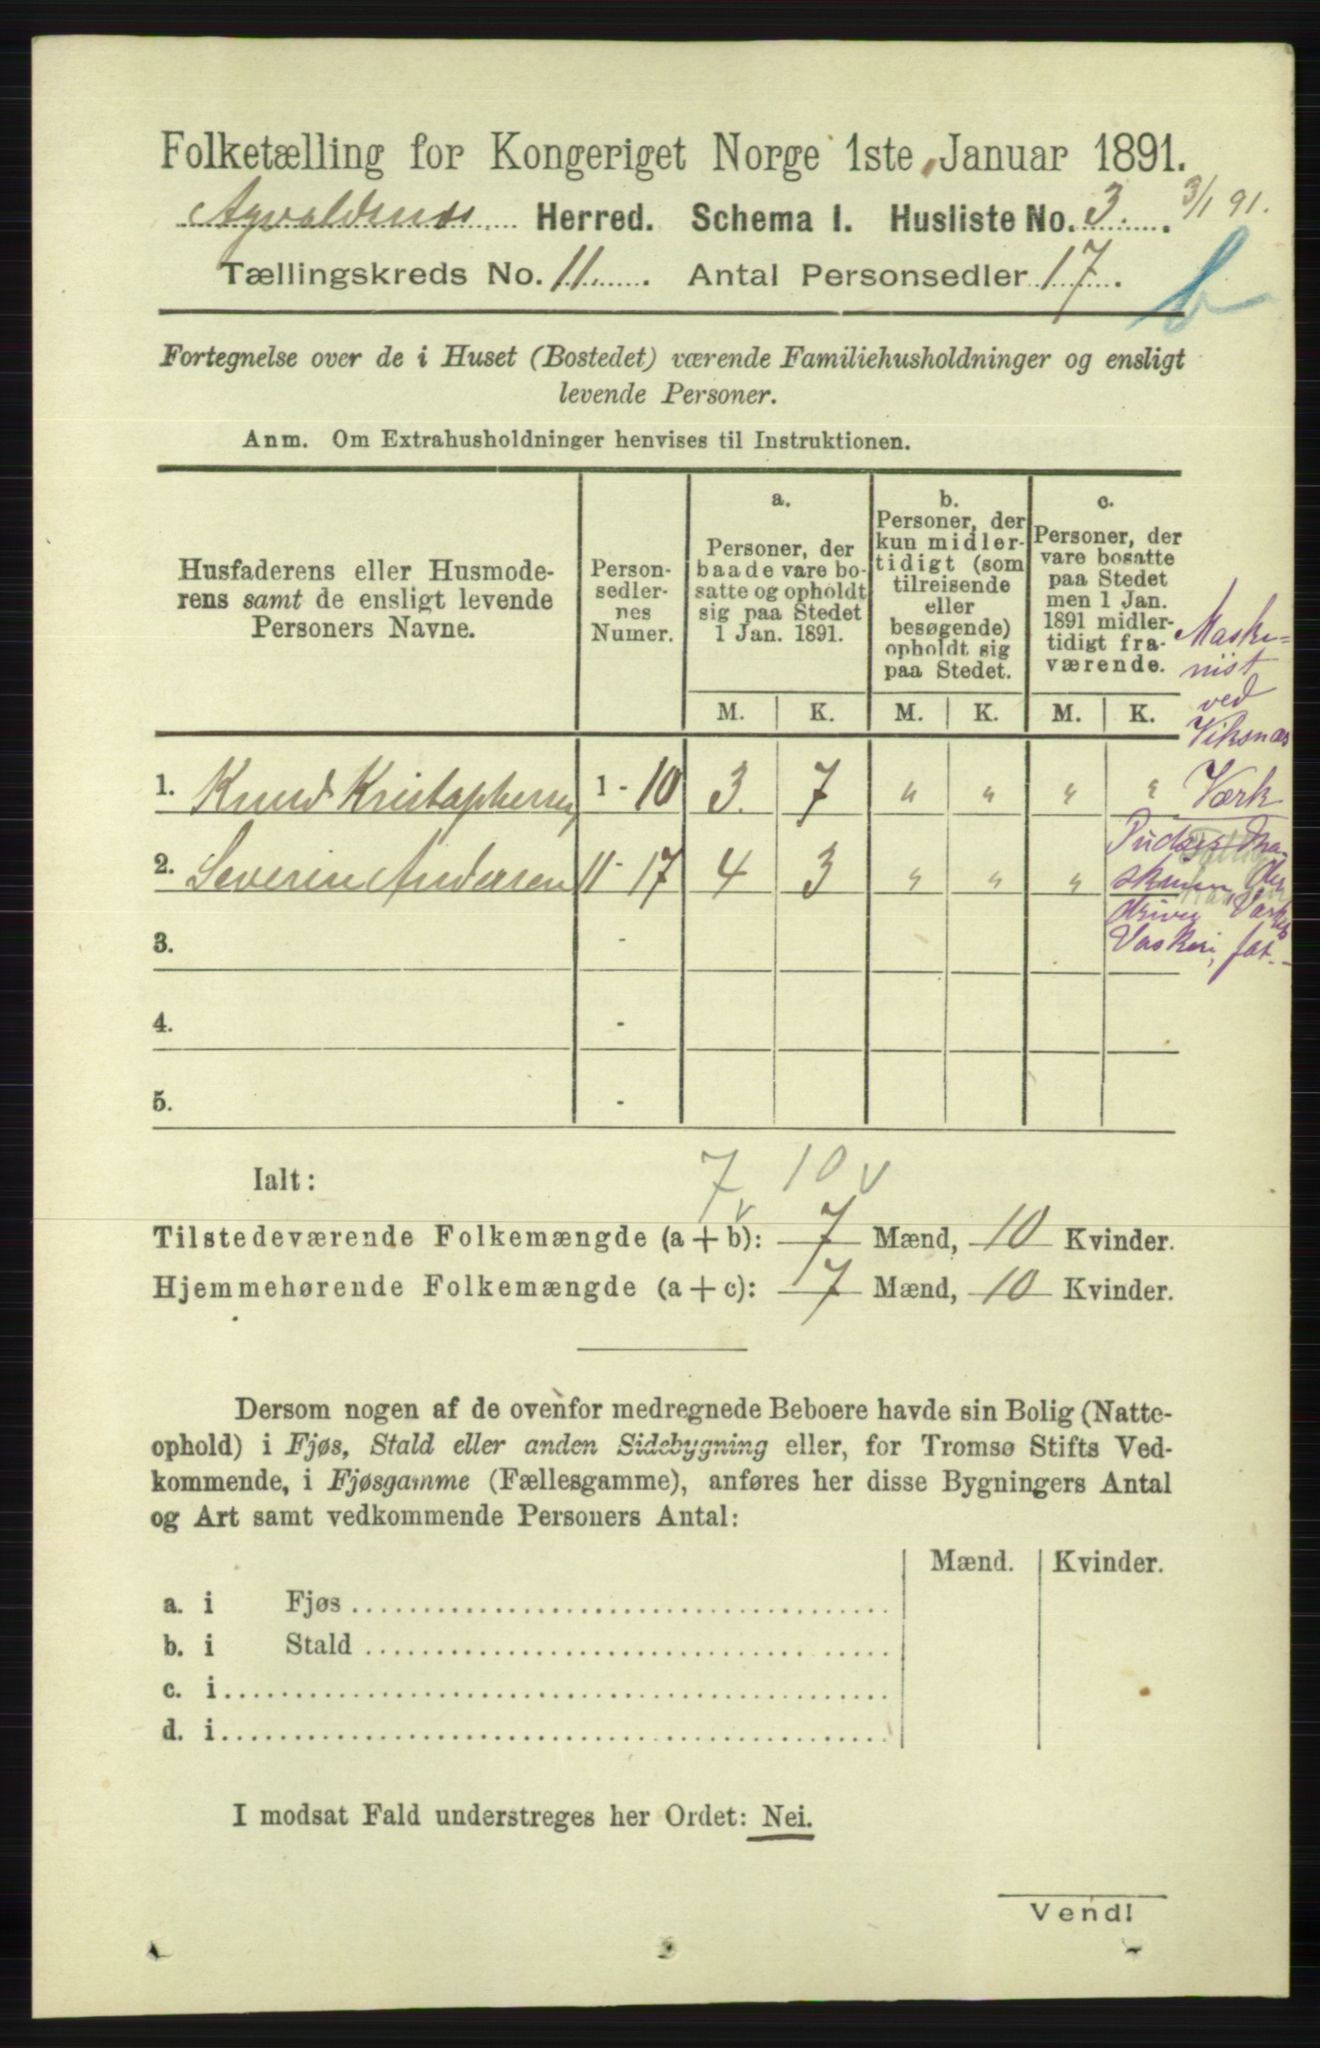 Folketælling for Kongeriget Norge 1ste Januar 1891.
Agvaldsnes Herred. Schema I. Husliste No. 3. 3/1 91.
Tællingskreds No. 11. Antal Personsedler 17.
b
Fortegnelse over de i Huset (Bostedet) værende Familiehusholdninger og ensligt
levende Personer.
Anm. Om Extrahusholdninger henvises til Instruktionen.
Husfaderens eller Husmode-
rens samt de ensligt levende
Personers Navne.
Person-
sedler-
nes
Numer.
a.
Personer, der
baade vare bo-
satte og opholdt
sig paa Stedet
1 Jan. 1891.
b.
Personer, der
kun midler-
tidigt (som
tilreisende
eller
besøgende)
opholdt sig
paa Stedet.
c.
Personer, der
vare bosatte
paa Stedet
men 1 Jan.
1891 midler-
tidigt fra-
værende.
M. K. M. K. M. K.
Maski-
nist
ved
Viksnæs
Værk
1. Knud Kristophersen 1 - 10 3. 7 " " " "
2. Severin Andersen 11 - 17 4 3 " " "
Pudser Ma-
skinen der
driver Værkets
Vaskeri, fat.
3. -
4. -
5. -
7 10 v
v
Ialt:
Tilstedeværende Folkemængde (a + b): 7 Mænd, 10 Kvinder.
Hjemmehørende Folkemængde (a + c): 7 Mænd, 10 Kvinder.
Dersom nogen af de ovenfor medregnede Beboere havde sin Bolig (Natte-
ophold) i Fjøs, Stald eller anden Sidebygning eller, for Tromsø Stifts Ved-
kommende, i Fjøsgamme (Fællesgamme), anføres her disse Bygningers Antal
og Art samt vedkommende Personers Antal:
Mænd. Kvinder.
a. i Fjøs
b. i Stald
c. i
d. i
I modsat Fald understreges her Ordet: Nei.
Vend!